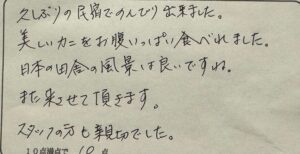 久しぶりの民宿でのんびり出来ました。
美しいカニをお腹いっぱい食べれました。
日本の田舎の風景は良いですね。
また来させて頂きます。
スタッフの方も親切でした。
10点満点で 10 点